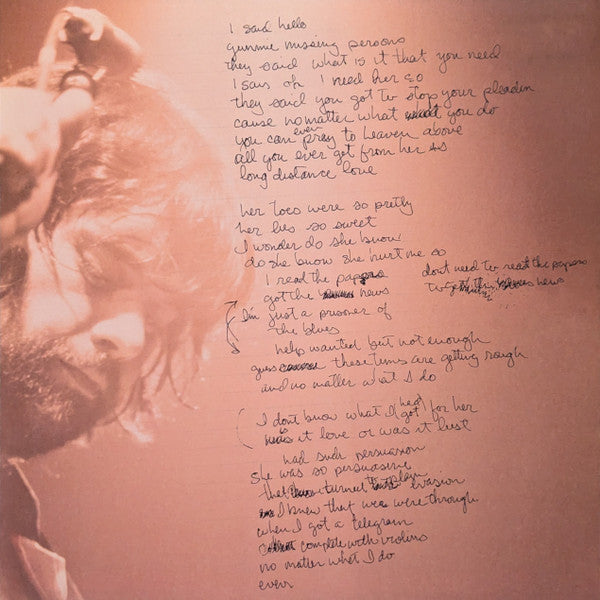 I said hello
gimme missing persons
they said what is it that you need
I says oh I need her so
they said you got to stop your pleadin
cause no matter what you do
you can even pray to heaven above
all you ever get from her is
long distance love
her toes were so pretty
her lies so sweet
I wonder do she know
do she know she hurt me so
I read the papers
dont need to read the papers
got the news
to get the news
I'm just a prisoner of
the blues
help wanted but not enough
guess these terms are getting rough
and no matter what I do
I dont know what I had got for her
was it love or was it lust
had such persuasion
She was so persuasive
that turned to plain evasion
I knew that we were through
when I got a telegram
complete with violins
no matter what I do
ever